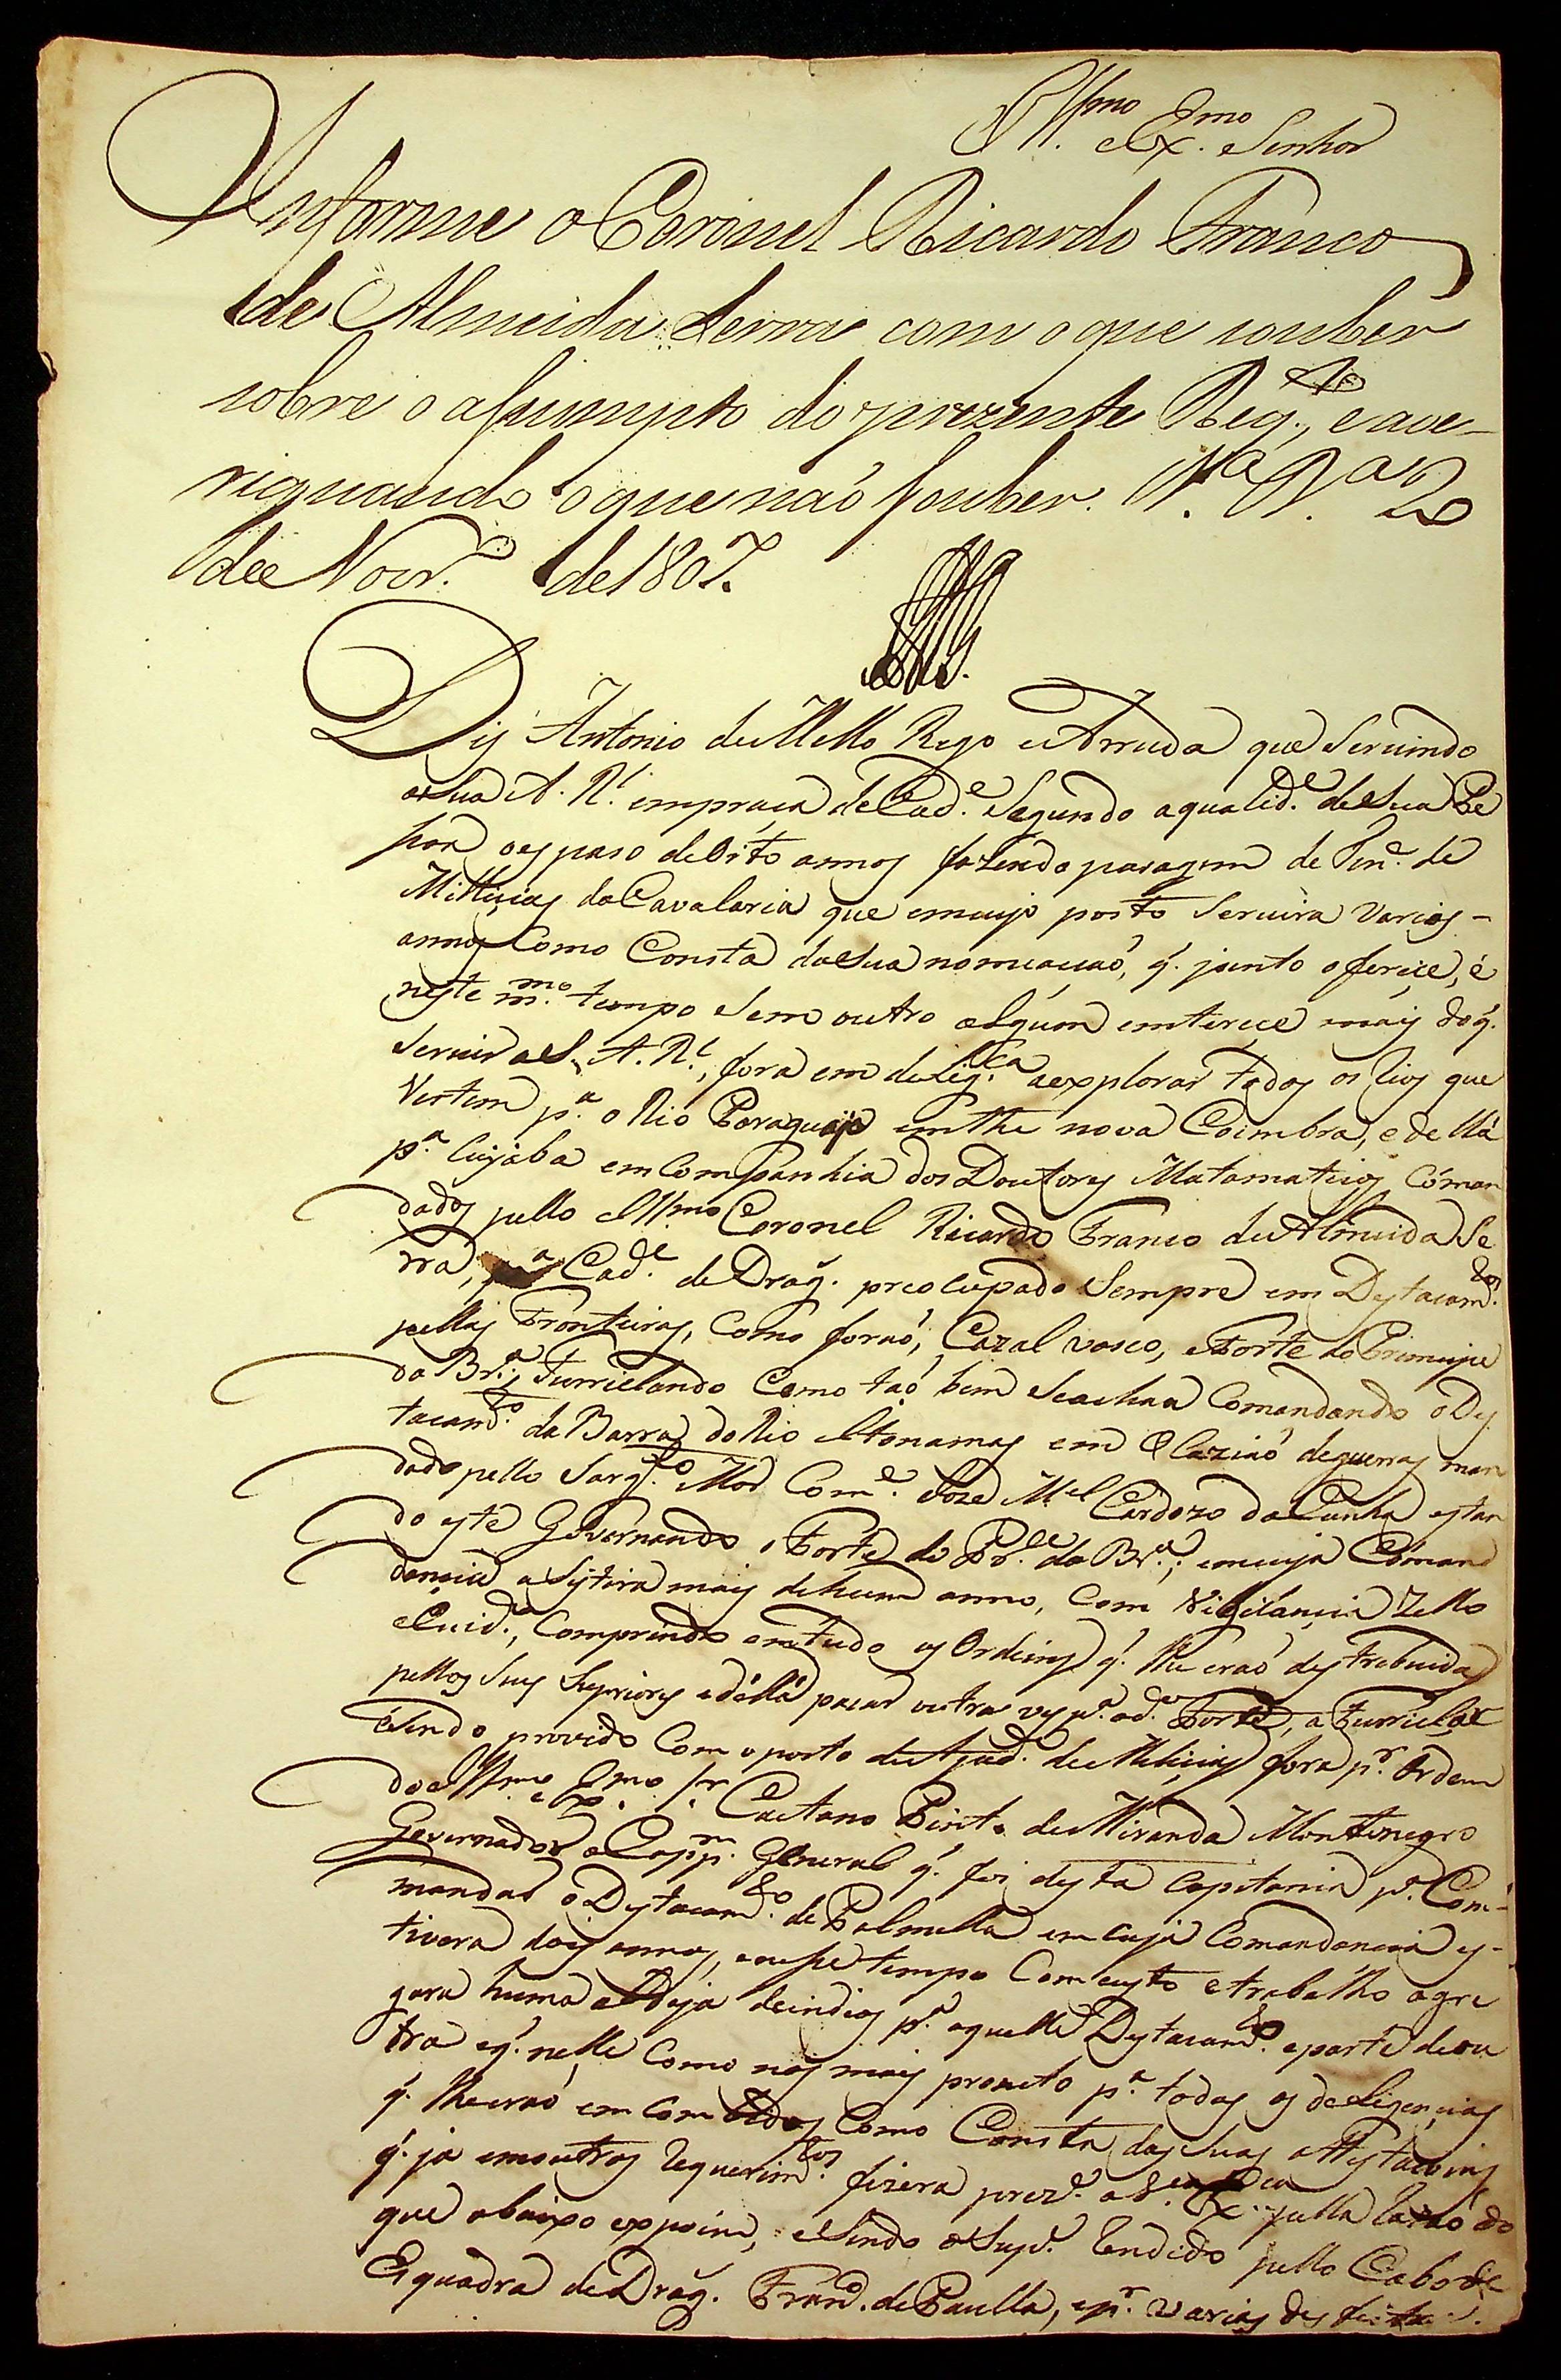 Ill.mo e Ex.mo Senhor
Informe o Coronel Ricardo Franco
de Almeida Serra com o que souber
sobre o assumpto do prezente Req.to, e ave-
riguando o que naõ souber. V.a B.a 20
de Novr.o de 1807.
Dis Antonio de Mello Rego e Arruda que Servindo
a Sua A. R.l em praça de Cad.e Segundo a qualid.e de Sua Pe
soa o espaso de Oito annos fazendo pasagem de Ten.e de
Millicias da Cavalaria que em cujo posto Servira varios-
annos Como Consta da Sua nomeacaõ, q. junto oferece, é
neste m.mo tempo Sem outro algum enterece mais do q.
Servir a S. A. R.l, fora em delig.ca a explorar todos os Rios que
Vertem p.a o Rio Paraguay enthe nova Coimbra, e de llá
p.a Cujaba em Companhia dos Doutores Matamaticos Cóman
dados pello Ill.mo Coronel Ricardo Franco de Almeida Se
rra, Cad.e de Drag. preocupado Sempre em Destacam.tos
pellas Fronteiras, Como foraõ, Cazal vasco, e Forte do Principe
da Br.a, Furrielando Como taõ bem Seachava Comandando o Des
tacam.to da Barra do Rio Itonamas em Ocaziaõ de guerras man
dado pello Sarg.to Mor Com.e Joze M.el Cardozo da Cunha estan
do este Governando o Forte do Pr.e da Br.a; em cuja Cóman
dancia asistira mais de hum anno, Com Vigilancia Zello
e Cuid.o, Comprindo em tudo as Ordeins q. lhe eraõ destrebuidas
pellos Seus Supriores e dellá pasar outra ves p.a o d.o Forte, a Furrielar
é Sendo provido Com o posto de Ajud.e de Milicias fora p.r Ordem
do Ill.mo e Ex.mo Sr. Caetano Pinto de Miranda Montenegro
Governador e Capp.m General q. foi desta Capitania p.a Com-
mandar o Destacam.to de Palmella em cuja Comandancia es-
tivera dois annos, e nesse tempo Com custo e trabalho agre
gara huma Aldeja de indios p.a aquelle Destacam.to e parte de ou
tra e q. nelle Como nos mais promto p.a todas as deligencias
q. lhe eraõ em Combidas Como Consta das Suas attestacoins
q. ja em outros requerim.tos fizera prez.e a V. Ex.ca pella razaõ do
que abaixo expoim, e Sendo o Sup.e rendido pello Cabo de
Esquadra de Drag. Fran.co de Paulla, e p.r varias des